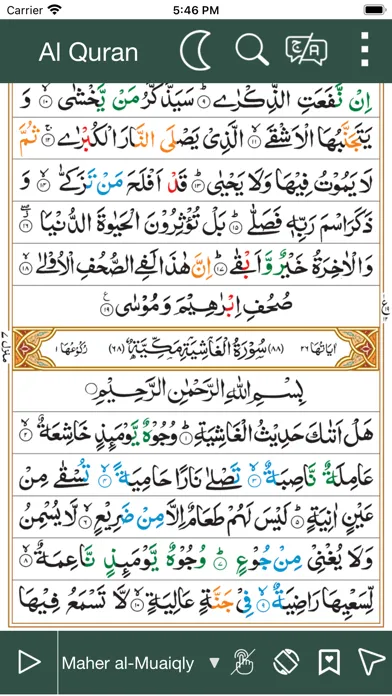 Carrier 5:46 PM
Al Quran
اِنْ نَّفَعَتِ الذِّكْرٰى ۹ سَيَذَّكَّرُ مَنْ يَّخْشٰى ۱۰ وَ
يَتَجَنَّبُهَا الْاَشْقَى ۱۱ الَّذِىْ يَصْلَى النَّارَ الْكُبْرٰى ۱۲ ثُمَّ
لَا يَمُوْتُ فِيْهَا وَلَا يَحْيٰى ۱۳ قَدْ اَفْلَحَ مَنْ تَزَكّٰى ۱۴ وَ
ذَكَرَ اسْمَ رَبِّهٖ فَصَلّٰى ۱۵ بَلْ تُؤْثِرُوْنَ الْحَيٰوةَ الدُّنْيَا ۱۶
وَالْاٰخِرَةُ خَيْرٌ وَّاَبْقٰى ۱۷ اِنَّ هٰذَا لَفِى الصُّحُفِ الْاُوْلٰى ۱۸
صُحُفِ اِبْرٰهِيْمَ وَمُوْسٰى ۱۹
اٰيَاتُهَا ۲۶ (۸۸) سُوْرَةُ الْغَاشِيَةِ مَكِّيَّةٌ (۶۸) رُكُوْعُهَا ۱
بِسْمِ اللّٰهِ الرَّحْمٰنِ الرَّحِيْمِ
هَلْ اَتٰىكَ حَدِيْثُ الْغَاشِيَةِ ۱ وُجُوْهٌ يَّوْمَئِذٍ خَاشِعَةٌ ۲
عَامِلَةٌ نَّاصِبَةٌ ۳ تَصْلٰى نَارًا حَامِيَةً ۴ تُسْقٰى مِنْ
عَيْنٍ اٰنِيَةٍ ۵ لَيْسَ لَهُمْ طَعَامٌ اِلَّا مِنْ ضَرِيْعٍ ۶ لَّا يُسْمِنُ
وَلَا يُغْنِىْ مِنْ جُوْعٍ ۷ وُجُوْهٌ يَّوْمَئِذٍ نَّاعِمَةٌ ۸
لِّسَعْيِهَا رَاضِيَةٌ ۹ فِىْ جَنَّةٍ عَالِيَةٍ ۱۰ لَّا تَسْمَعُ فِيْهَا
Maher al-Muaiqly